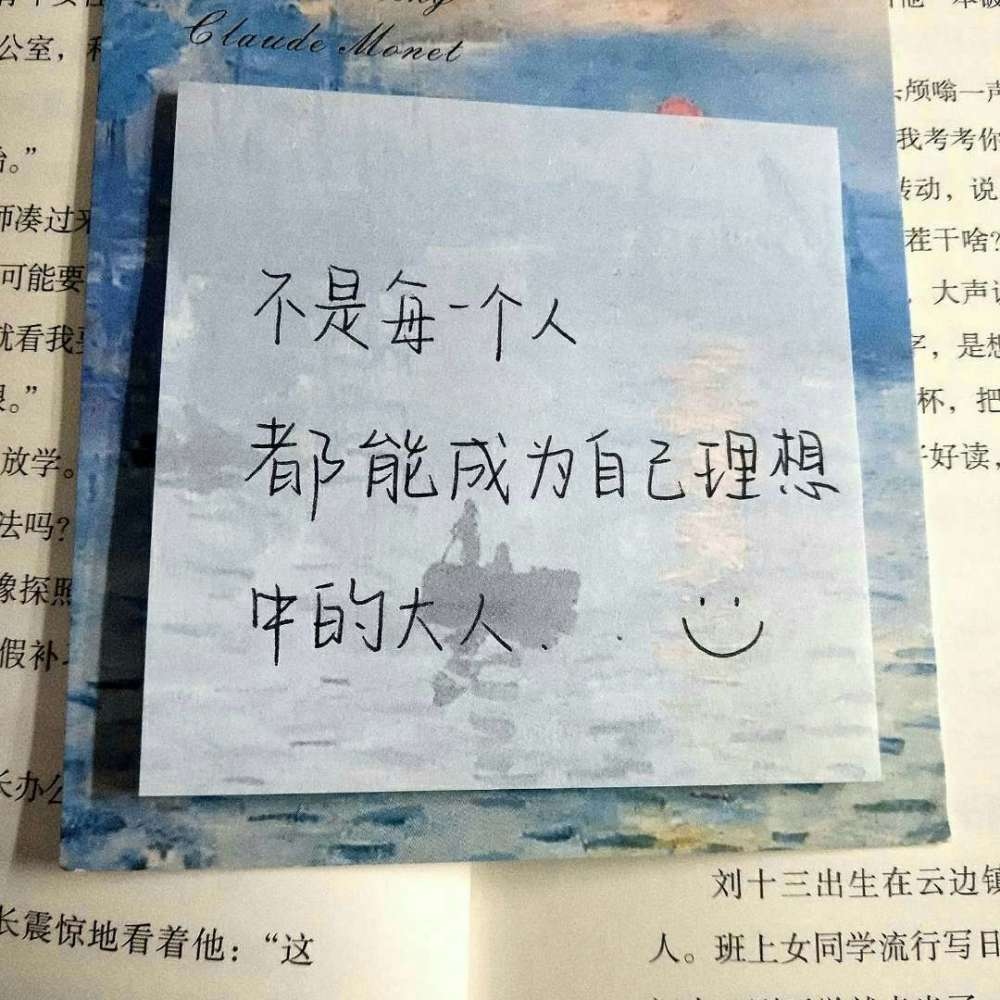 Claude Monet
不是每一个人
都能成为自己理想
中的大人..
公室，
。”
师凑过来
可能要
就看我
。”
放学。
法吗？
像探照
假补
长办公
长震惊地看着他：“这
颅嗡一声
我考考你
转动，说
茬干啥？
，大声
字，是想
杯，把
好读，
刘十三出生在云边镇
人。班上女同学流行写日